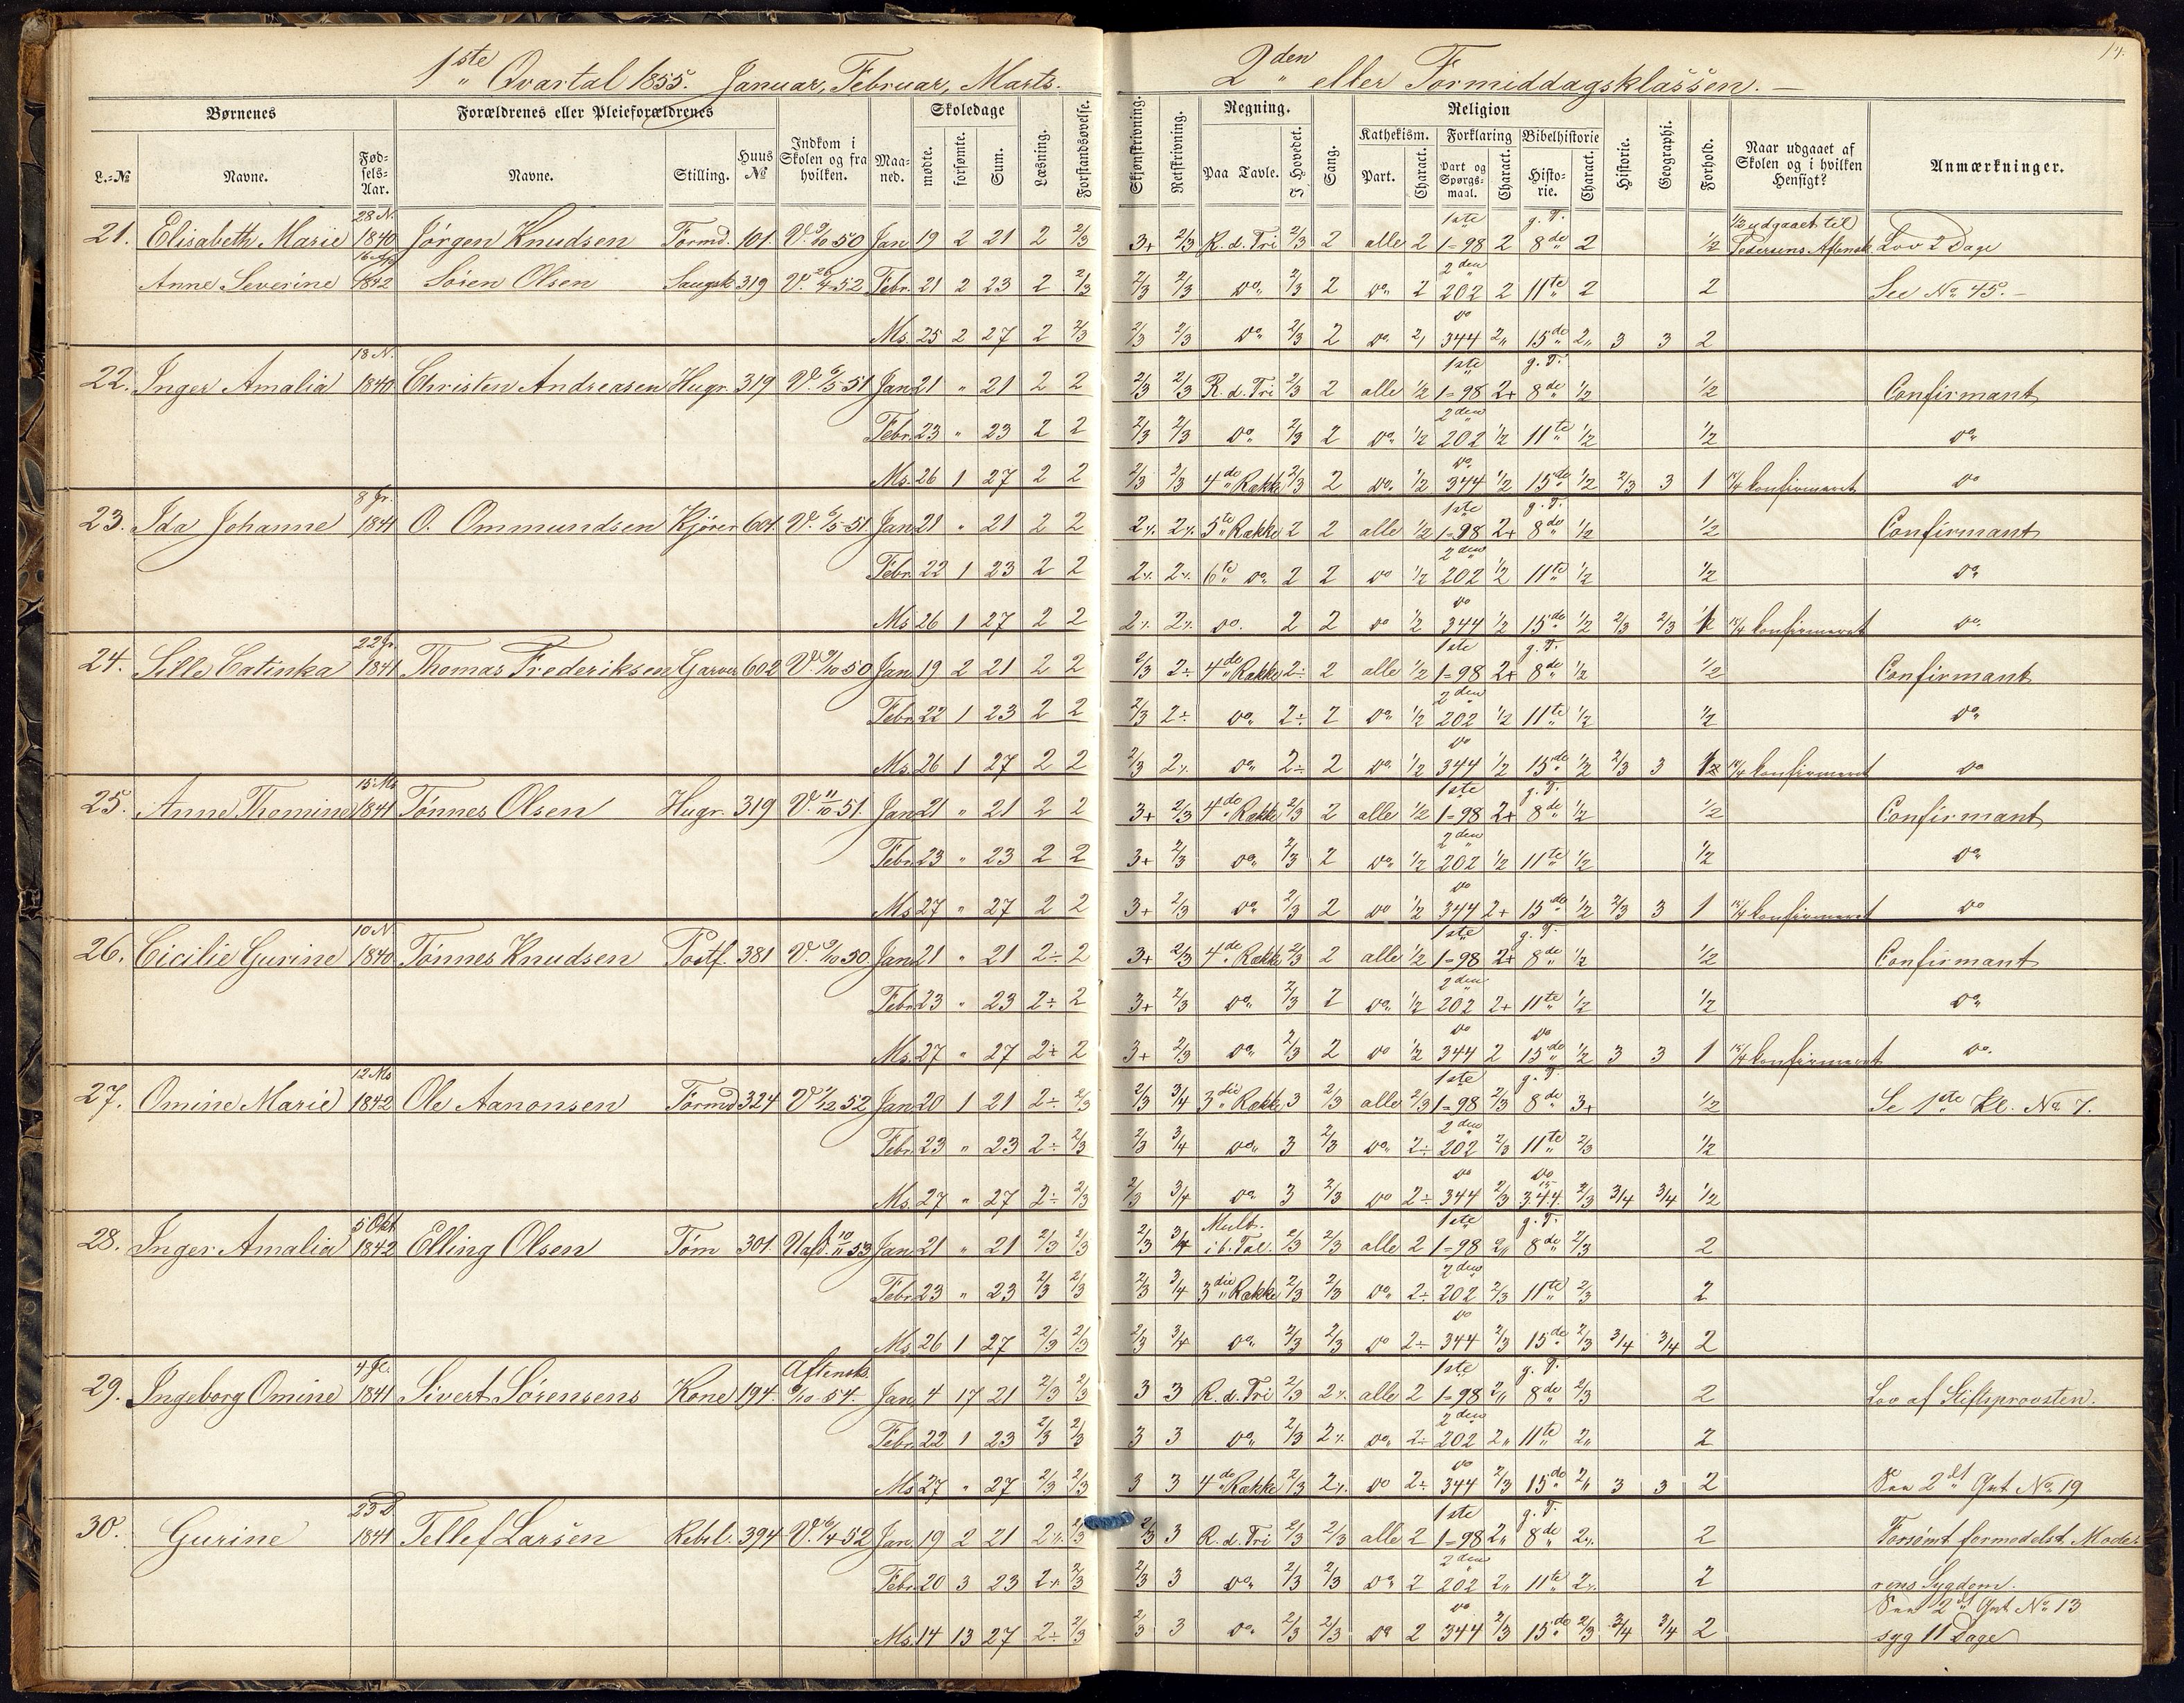 1ste Qvartal 1855. Januar, Februar, Marts.
2den eller Formiddagsklassen. —
14.
Børnenes
Forældrenes eller Pleieforældrenes
Skoledage
L.-№ Navne. Fød-sels-Aar. Navne. Stilling. Huus № Indkom i Skolen og fra hvilken. Maa-ned. mødte. forsømte. Sum. Læsning. Forstandsøvelse.
Skjønskrivning. Retskrivning. Regning. Paa Tavle. I Hovedet. Sang. Religion Kathekism. Part. Charact. Forklaring Part og Spørgs-maal. Charact. Bibelhistorie Histo-rie. Charact. Historie. Geographi. Forhold. Naar udgaaet af Skolen og i hvilken Hensigt? Anmærkninger.
28 N. 1ste g. T. 1/2 udgaaet til
21. Elisabeth Marie 1840 Jörgen Knudsen Formd. 101. V. 9/10 50 Jan 19 2 21 2 2/3 3+ 2/3 R. d. Tri 2/3 2 alle 2 1=98 2 8de 2 1/2 Pedersens Aftensk. Lov 2 Dage
2den
Anne Severine 1842 Sören Olsen Saugsk 319 V. 26/4 52 Febr. 21 2 23 2 2/3 2/3 2/3 do 2/3 2 do 2 202 2 11te 2 2 See No 45. —
do
Ms. 25 2 27 2 2/3 2/3 2/3 do 2/3 2 do 2 344 2 15de 2 3 3 2
18 N. 1ste g. T.
22. Inger Amalia 1840 Christen Andreasen Hugr. 319 V. 6/5 51 Jan 21 " 21 2 2 2/3 2/3 R. d. Tri 2/3 2 alle 1/2 1=98 2+ 8de 1/2 1/2 Confirmant
2den
Febr. 23 " 23 2 2 2/3 2/3 do 2/3 2 do 1/2 202 1/2 11te 1/2 1/2 do
do
Ms. 26 1 27 2 2 2/3 2/3 4de Række 2/3 2 do 1/2 344 1/2 15de 1/2 2/3 3 1 15/4 konfirmeret do
8 Jr. 1ste g. T.
23. Ida Johanne 1841 O. Ommundsen Kjörer 601. V. 6/5 51 Jan 21 " 21 2 2 2÷ 2÷ 5te Række 2 2 alle 1/2 1=98 2+ 8de 1/2 1/2 Confirmant
2den
Febr. 22 1 23 2 2 2÷ 2÷ 6te do 2 2 do 1/2 202 1/2 11te 1/2 1/2 do
do
Ms 26 1 27 2 2 2÷ 2÷ do. 2 2 do 1/2 344 1/2 15de 1/2 2/3 2/3 15/4 konfirmeret do
22 Jr. 1ste g. T.
24. Sille Catinka 1841 Thomas Frederiksen Garver 602 V. 9/10 50 Jan 19 2 21 2 2 2/3 2÷ 4de Række 2÷ 2 alle 1/2 1=98 2+ 8de 1/2 1/2 Confirmant
2den
Febr. 22 1 23 2 2 2/3 2÷ do 2÷ 2 do 1/2 202 1/2 11te 1/2 1/2 do
do
Ms. 26 1 27 2 2 2/3 2÷ do 2÷ 2 do 1/2 344 1/2 15de 1/2 2/3 3 15/4 konfirmeret do
15 Ms 1ste g. T.
25. Anne Thomine 1841 Tönnes Olsen Hugr. 319 V. 11/10 51. Jan 21 " 21 2 2 3+ 2/3 4de Række 2/3 2 alle 1/2 1=98 2+ 8de 1/2 1/2 Confirmant
2den
Febr. 23 " 23 2 2 3+ 2/3 do 2/3 2 do 1/2 202 1/2 11te 1/2 1/2 do
do
Ms 27 " 27 2 2 3+ 2/3 do 2/3 2 do 1/2 344 2+ 15de 1/2 2/3 3 1 15/4 konfirmeret do
10 N 1ste g. T.
26. Cicilie Gurine 1840 Tönnes Knudsen Postf. 381 V. 9/10 50 Jan 21 " 21 2÷ 2 3+ 2/3 4de Række 2/3 2 alle 1/2 1=98 2+ 8de 1/2 1/2 Confirmant
2den
Febr. 23 " 23 2÷ 2 3+ 2/3 do 2/3 2 do 1/2 202 2+ 11te 1/2 1/2 do
do do
Ms. 27 " 27 2÷ 2 3+ 2/3 do 2/3 2 do 1/2 344 2 15de 1/2 3 3 1 15/4 konfirmeret do.
12 Ms 1ste g. T.
27. Omine Marie 1842 Ole Aanonsen Törmd 324 V 1/12 52 Jan 20 1 21 2÷ 2/3 2/3 3/4 3die Række 3 2/3 alle 2/3 1=98 2/3 8de 3+ 1/2 Se 1ste Kl. No 7.
2den
Febr. 23 " 23 2÷ 2/3 2/3 3/4 do 3 2/3 do 2÷ 202 2/3 11te 2/3 1/2
do do
Ms. 27 " 27 2÷ 2/3 2/3 3/4 do 3 2/3 do 2÷ 344 2/3 344 2/3 3/4 3/4 1/2
5 Okt Mult. 1ste g. T.
28. Inger Amalia 1842 Elling Olsen Töm 301. Uafd. 10/11 53 Jan 21 " 21 2/3 2/3 2/3 3/4 i b. Tal. 2/3 2/3 alle 2 1=98 2 8de 2/3 2
2den
Febr. 23 " 23 2/3 2/3 2/3 3/4 3die Række 2/3 2/3 do 2÷ 202 2/3 11te 2/3 2
do
Ms. 26 1 27 2/3 2/3 2/3 3/4 do 2/3 2/3 do 2÷ 344 2/3 15de 2/3 3/4 3/4 2
4 Jl. Aftensk. 1ste g. T.
29. Ingeborg Omine 1841 Sivert Sörensens Kone 194. 9/10 54. Jan 4 17 21 2/3 2/3 3 3 R. d. Tri 2/3 2÷ alle 2 1=98 2 8de 2/3 2 Lov af Stiftsprovsten.
2den
Febr. 22 1 23 2/3 2/3 3 3 do 2/3 2÷ do 2÷ 202 2 11te 2 2
do
Ms 27 " 27 2/3 2/3 3 3 4de Række 2/3 2÷ do 2÷ 344 2/3 15de 2 3 3 2 2dt Qvt No 19
23 D 1ste g. T.
30. Gurine 1841 Tellef Larsen Rebsl. 394 V. 16/4 52 Jan. 19 2 21 2÷ 2/3 2/3 3 R. d. Tri 2/3 2/3 alle 2 1=98 2 8de 2÷ 2 Forsömt formedelst Mode-
2den
Febr. 20 3 23 2÷ 2/3 2/3 3 do 2/3 2/3 do 2 202 2 11te 2÷ 2 rens Sygdom.
do 2dt Qvt No 13
Ms. 14 13 27 2÷ 2/3 2/3 3 do 2/3 2/3 do 2 344 2/3 15de 2/3 3/4 3/4 2 syg 11 Dage